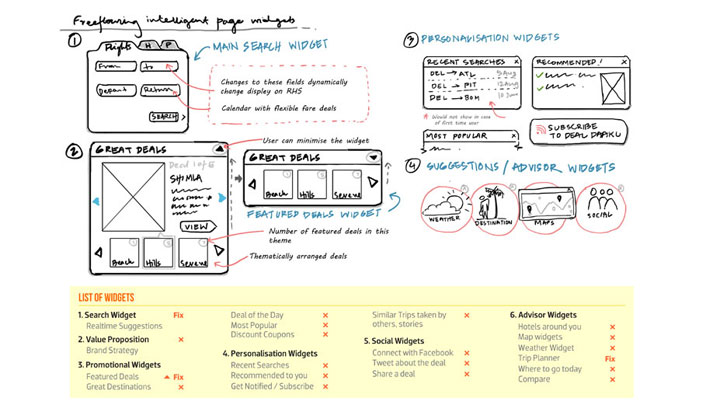 Freeflowing intelligent page widgets
1
Flights H P
From To
Depart Return
SEARCH >
MAIN SEARCH WIDGET
Changes to these fields dynamically
change display on RHS
Calendar with flexible fare deals
2
User can minimise the widget
GREAT DEALS
Deal 1 of 5
SHIMLA
VIEW >
Beach Hills Serene
GREAT DEALS
Beach Hills Serene
FEATURED DEALS WIDGET
Number of featured deals in this
theme
Thematically arranged deals
3 PERSONALISATION WIDGETS
RECENT SEARCHES X
DEL → ATL 5 Aug
DEL → PIT 12 Aug
DEL → BOM
Would not show in case
of first time user
MOST POPULAR X
RECOMMENDED! X
SUBSCRIBE
TO DEAL
4 SUGGESTIONS / ADVISOR WIDGETS
WEATHER
DESTINATION
MAPS
SOCIAL
LIST OF WIDGETS
1. Search Widget Fix
Realtime Suggestions
2. Value Proposition ×
Brand Strategy
3. Promotional Widgets
Featured Deals Fix
Great Destinations ×
Deal of the Day ×
Most Popular ×
Discount Coupons ×
4. Personalisation Widgets
Recent Searches ×
Recommended to you ×
Get Notified / Subscribe ×
Similar Trips taken by ×
others, stories
5. Social Widgets
Connect with Facebook ×
Tweet about the deal ×
Share a deal ×
6. Advisor Widgets
Hotels around you ×
Map widgets ×
Weather Widget ×
Trip Planner Fix
Where to go today ×
Compare ×